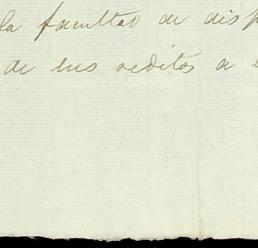 la facultad de disp
de sus reditos a